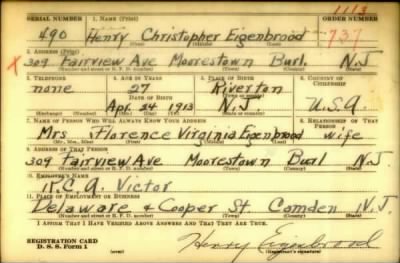 1113
SERIAL NUMBER 1. NAME (Print) ORDER NUMBER
490 Henry Christopher Eigenbrood 737
(First) (Middle) (Last)
2. ADDRESS (Print)
X 309 Fairview Ave Moorestown Burl. N.J.
(Number and street or R. F. D. number) (Town) (County) (State)
3. TELEPHONE 4. AGE IN YEARS 5. PLACE OF BIRTH 6. COUNTRY OF CITIZENSHIP
none 27 Riverton
DATE OF BIRTH (Town or county)
Apr. 24 1913 N.J. U.S.A.
(Exchange) (Number) (Mo.) (Day) (Yr.) (State or country)
7. NAME OF PERSON WHO WILL ALWAYS KNOW YOUR ADDRESS 8. RELATIONSHIP OF THAT PERSON
Mrs Florence Virginia Eigenbrood wife
(Mr., Mrs., Miss) (First) (Middle) (Last)
9. ADDRESS OF THAT PERSON
309 Fairview Ave Moorestown Burl N.J.
(Number and street or R. F. D. number) (Town) (County) (State)
10. EMPLOYER'S NAME
R.C.A. Victor
11. PLACE OF EMPLOYMENT OR BUSINESS
Delaware & Cooper St. Camden N.J.
(Number and street or R. F. D. number) (Town) (County) (State)
I AFFIRM THAT I HAVE VERIFIED ABOVE ANSWERS AND THAT THEY ARE TRUE.
REGISTRATION CARD
D. S. S. Form 1 (over) Henry Eigenbrood